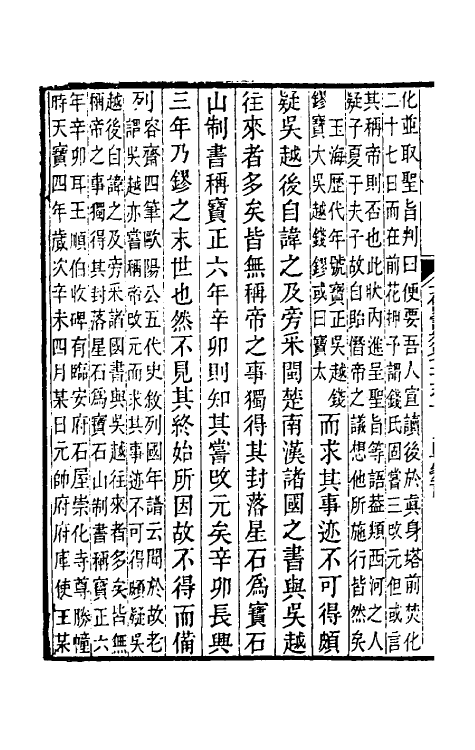 化並取聖旨判曰便要吾人宜讀後於眞身塔前焚化
二十七日而在前花押予謂錢氏固嘗三改元但或言
其稱帝則否也此狀內進呈聖旨等語葢類西河之人
疑子夏于夫子故自貽僭帝之議想他所施行皆然矣
玉海歷代年號寶正吳越錢
鏐寶大吳越錢鏐或曰寶太
而求其事迹不可得頗
疑吳越後自諱之及旁采閩楚南漢諸國之書與吳越
往來者多矣皆無稱帝之事獨得其封落星石爲寶石
山制書稱寶正六年辛卯則知其嘗改元矣辛卯長興
三年乃鏐之末世也然不見其終始所因故不得而備
列容齋四筆歐陽公五代史敘列國年譜云聞於故老
謂吳越亦嘗稱帝改元而求其事迹不可得頗疑吳
越後自諱之及旁采諸國書與吳越往來者多矣皆無
稱帝之事獨得其封落星石爲寶石山制書稱寶正六
年辛卯耳王順伯收碑有臨安府石屋崇化寺尊勝幢
時天寶四年歲次辛未四月某日元帥府府庫使王某